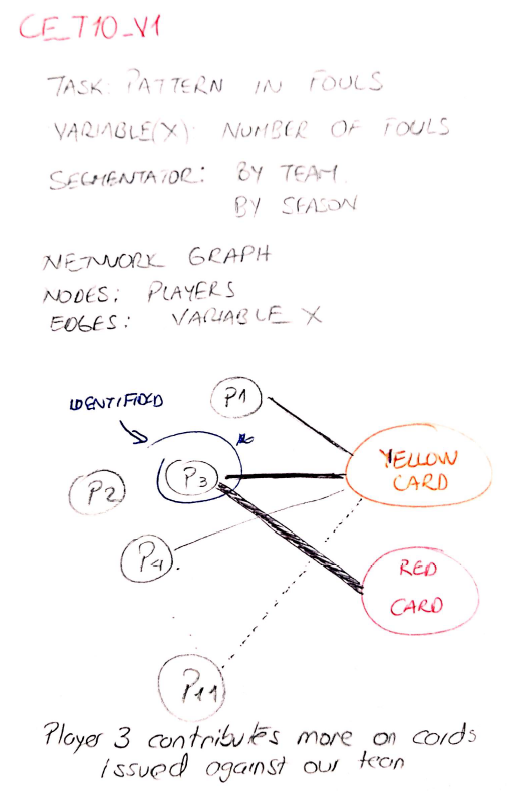 CE_T10_V1
TASK: PATTERN IN FOULS
VARIABLE(X): NUMBER OF FOULS
SEGMENTATOR: BY TEAM.
BY SEASON
NETWORK GRAPH
NODES: PLAYERS
EDGES: VARIABLE X
IDENTIFIED
P1
YELLOW
CARD
P3
P2
P4
RED
CARD
P11
Player 3 contributes more on cards
issued against our team